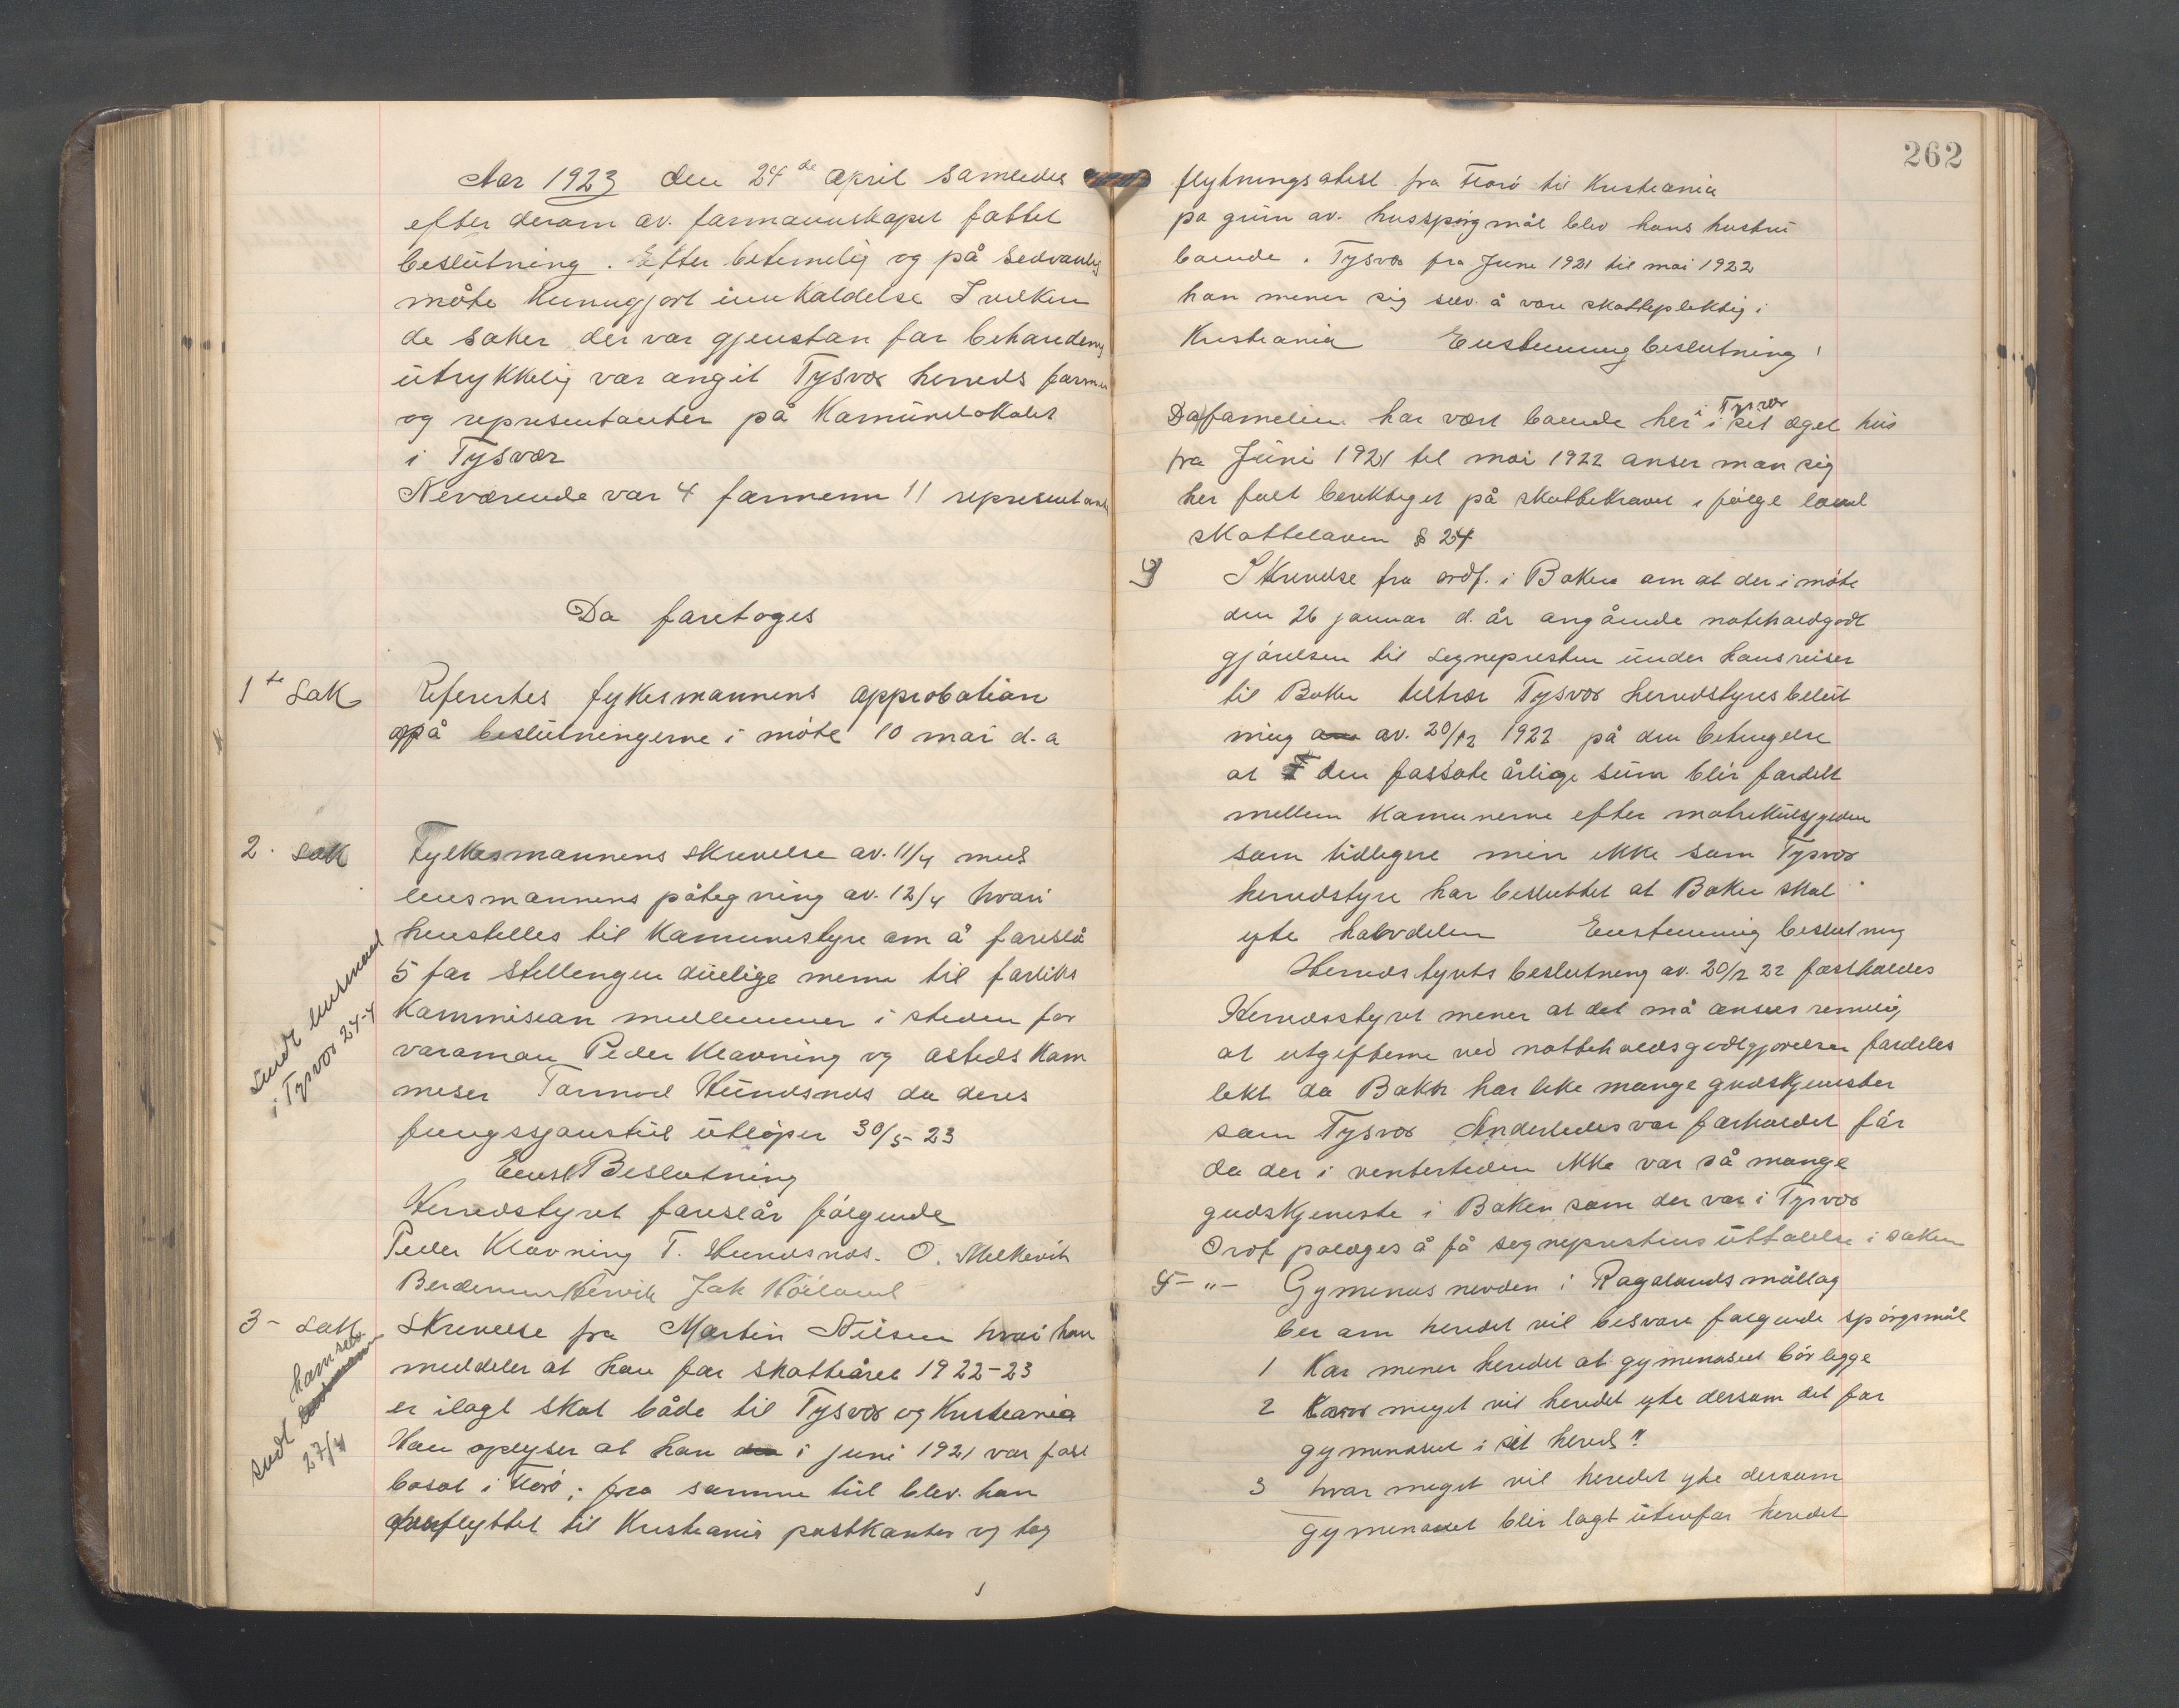 Aar 1923 den 24de april samledes
efter derom av. formannskapet fattet
beslutning. Efter betimelig og på sedvanlig
måte kunngjort innkaldelse I vilken
de saker der var gjenstan for behandeng
utrykkelig var angit Tysvær herreds formen
og representanter på Kamunelokalet
i Tysvær
Neværende var 4 formenn 11 representante
Da foretoges
1te Sak Referertes fykesmannens approbation
på beslutningerne i møte 10 mai d.a
2. Sak Fylkesmannens skrivelse av. 11/4 med
lensmannens påtegning av. 12/4 hvori
henstilles til Kamunestyre om å foreslå
5 for stellengen duelige menn til forliks
Kommisian medlemmer i steden for
varaman Peder Klovning og asteds Kom
meser Tormod Hundsnes da deres
fungsjonstid utløper 30/5-23
sendt lensmand
i Tysvær 24-4
Eenst Beslutning
Herredstyret foreslår følgende
Peder Klovning T. Hundsnes. O. Stelkevik
Jak Høiland
3- Sak Skrivelse fra Martin Nilsen hvori han
meddeler at han for skatteåret 1922-23
er ilagt skat både til Tysvær og Kristiania
Han oplyser at han i juni 1921 var fast
bosat i Florø; fra samme tid blev. han
flyttet til Kristiania postkontor og tog
sendt
27/4
262
flytningsatest fra Florø til Kristiania
på grun av. husspørgmål blev hans hustru
boende i Tysvær fra June 1921 til mai 1922
han mener sig selv. å være skattepliktig i
Kristiania Enstemmig beslutning
Da familien har vært boende her i Tysvær i sit eget hus
fra Juni 1921 til mai 1922 anser man sig
her fult berettiget på skattekravet i følge land
skatteloven § 24
Skrivelse fra ordf. i Bokn om at der i møte
den 26 januar d. år angående notehordgodt
gjørelsen til sogneprestin under hans reiser
til Bokn tiltrær Tysvær herredstyres belut
ning av. 20/12 1922 på den betingelse
at den fastsate årlige sum blir fordelt
mellem Kamunerne efter matrikulskylden
som tidligere min ikke som Tysvær
herredstyre har besluttet at Bokn skal
yte halvdelen Enstemmig beslutning
Herredstyrets beslutning av. 20/12 22 fastholdes
Herredsstyret mener at det må ansees remelig
at utgifterne ved nattholdsgodtgjørelsen fordeles
likt da Bokn har like mange gudstjenester
som Tysvær Anderledes var forholdet før
da der i vintertiden ikke var så mange
gudstjeneste i Boken som der var i Tysvær
Ordf. pålæges å få sogneprestens uttalelse i saken
4- "- Gymenas nevden i Ragalands mållag
ber om heredet vil besvare følgende spørgsmål
1 Kor mener heredet at gymenaset bør ligge
2 meget vil heredet yte dersom det får
gymenaset i sit hered"
3 hvor meget vil heredet yte dersom
gymenaset blir lagt utenfor heredet